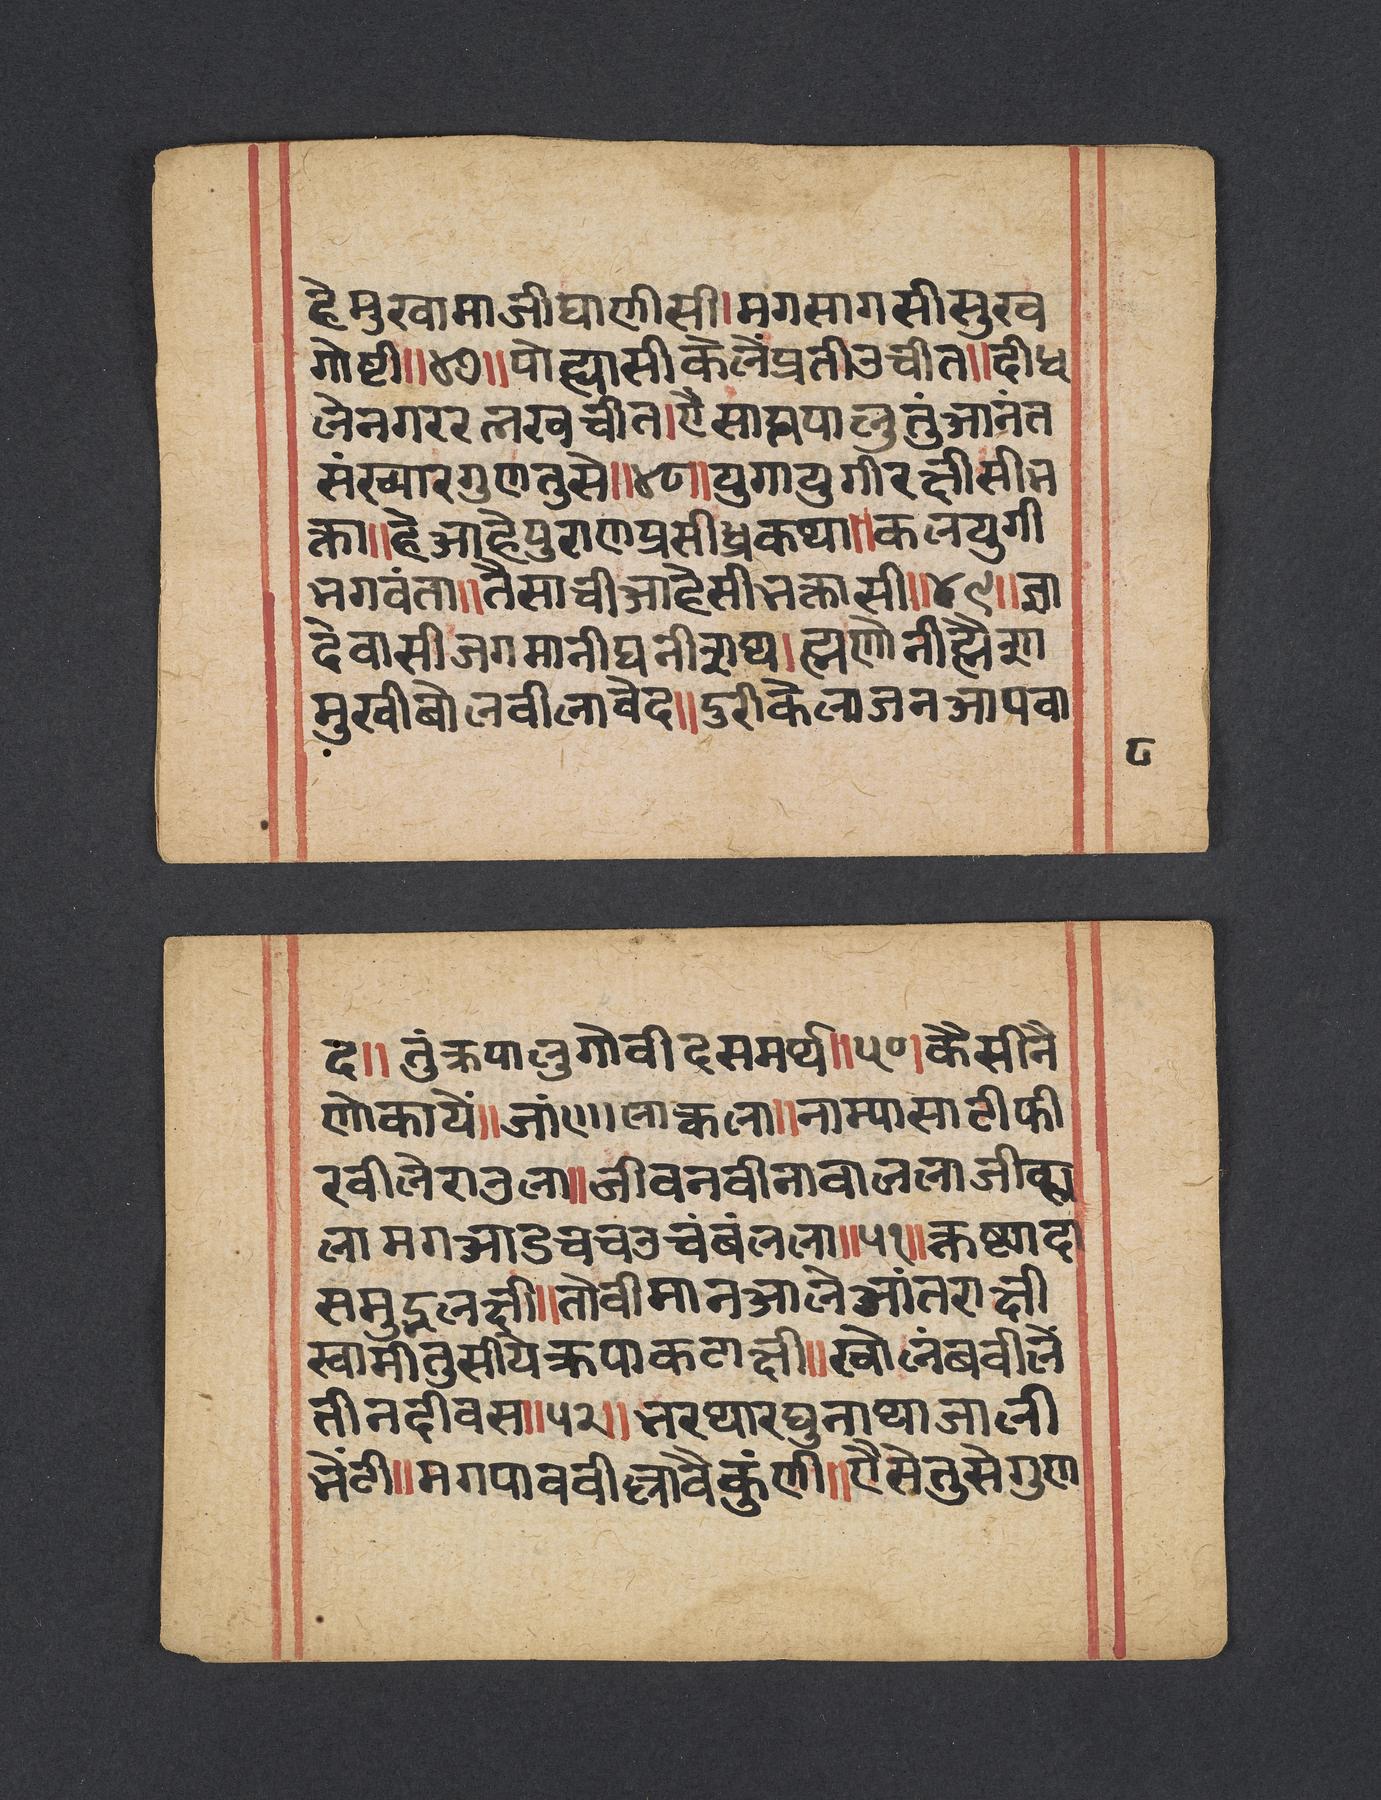 हे मुखामाजी घाणीसी। मग सागसी सुख
गोष्टी॥४७॥ पोह्यासी केलें प्रती उचीत॥ दीध
ले नगर रत्नखचीत। ऐसा क्रपालु तुं आनंत
संख्यार गुण तुसे॥४८॥ युगा युगी रक्षीसी भ
क्ता॥ हे आहे पुराण प्रसीध्र कथा॥ कलयुगी
भगवंता॥ तैसाची आहेसी भक्तासी॥४९॥ ज्ञा
देवासी जगमानी घनी
मुखी बोलवीला वेद॥ दुरी केला जन आपवा
८
द॥ तुं क्रपालु गोवीद समर्थ्य॥५०। कैसी नै
णो कायें॥ जांणाला कला॥ नाम्यासाटी फी
रवीले राउला॥ जीवनवीना वाललाजीव्हा
ला मग आडचच उचंबंलला॥५१॥ क्रष्णदा
स मुद्गलक्षी॥ तो वीमान आले आंतराक्षी
स्वामी तुसीये क्रपाकटाक्षी॥ खोलंबवीलें
तीन दीवस॥५२॥ भरथा रघुनाथा जाली
भेंटी॥ मग पाववीला वैकुंठी॥ ऐसे तुसे गुण